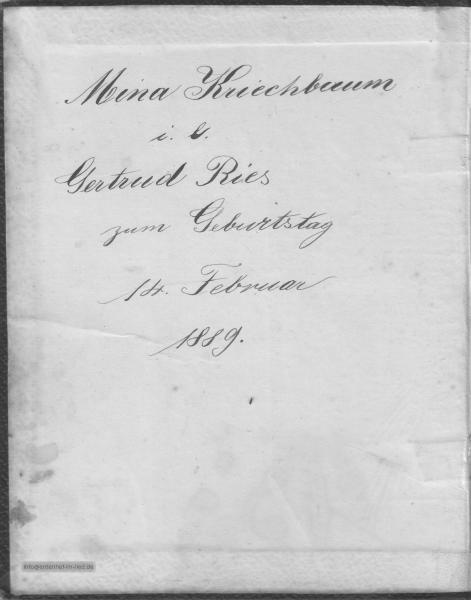 Mina Kriechbaum
i. l.
Gertrud Ries
zum Geburtstag
14. Februar
1889.
info@erdenhof-im-ried.de